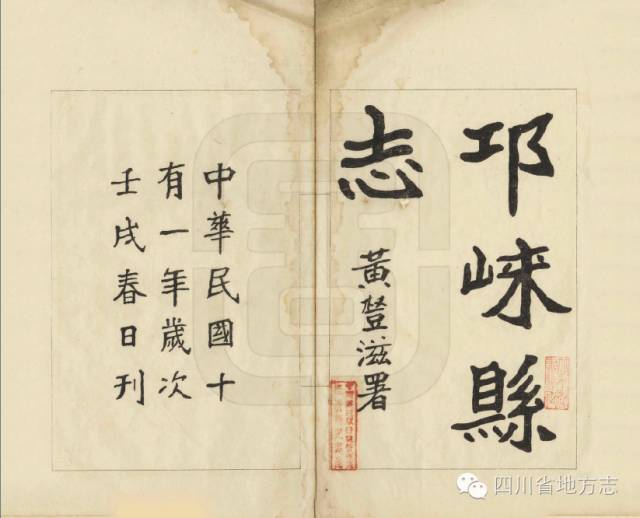 邛崍縣
志
黃登滋署
中華民國十
有一年歲次
壬戌春日刊
四川省地方志